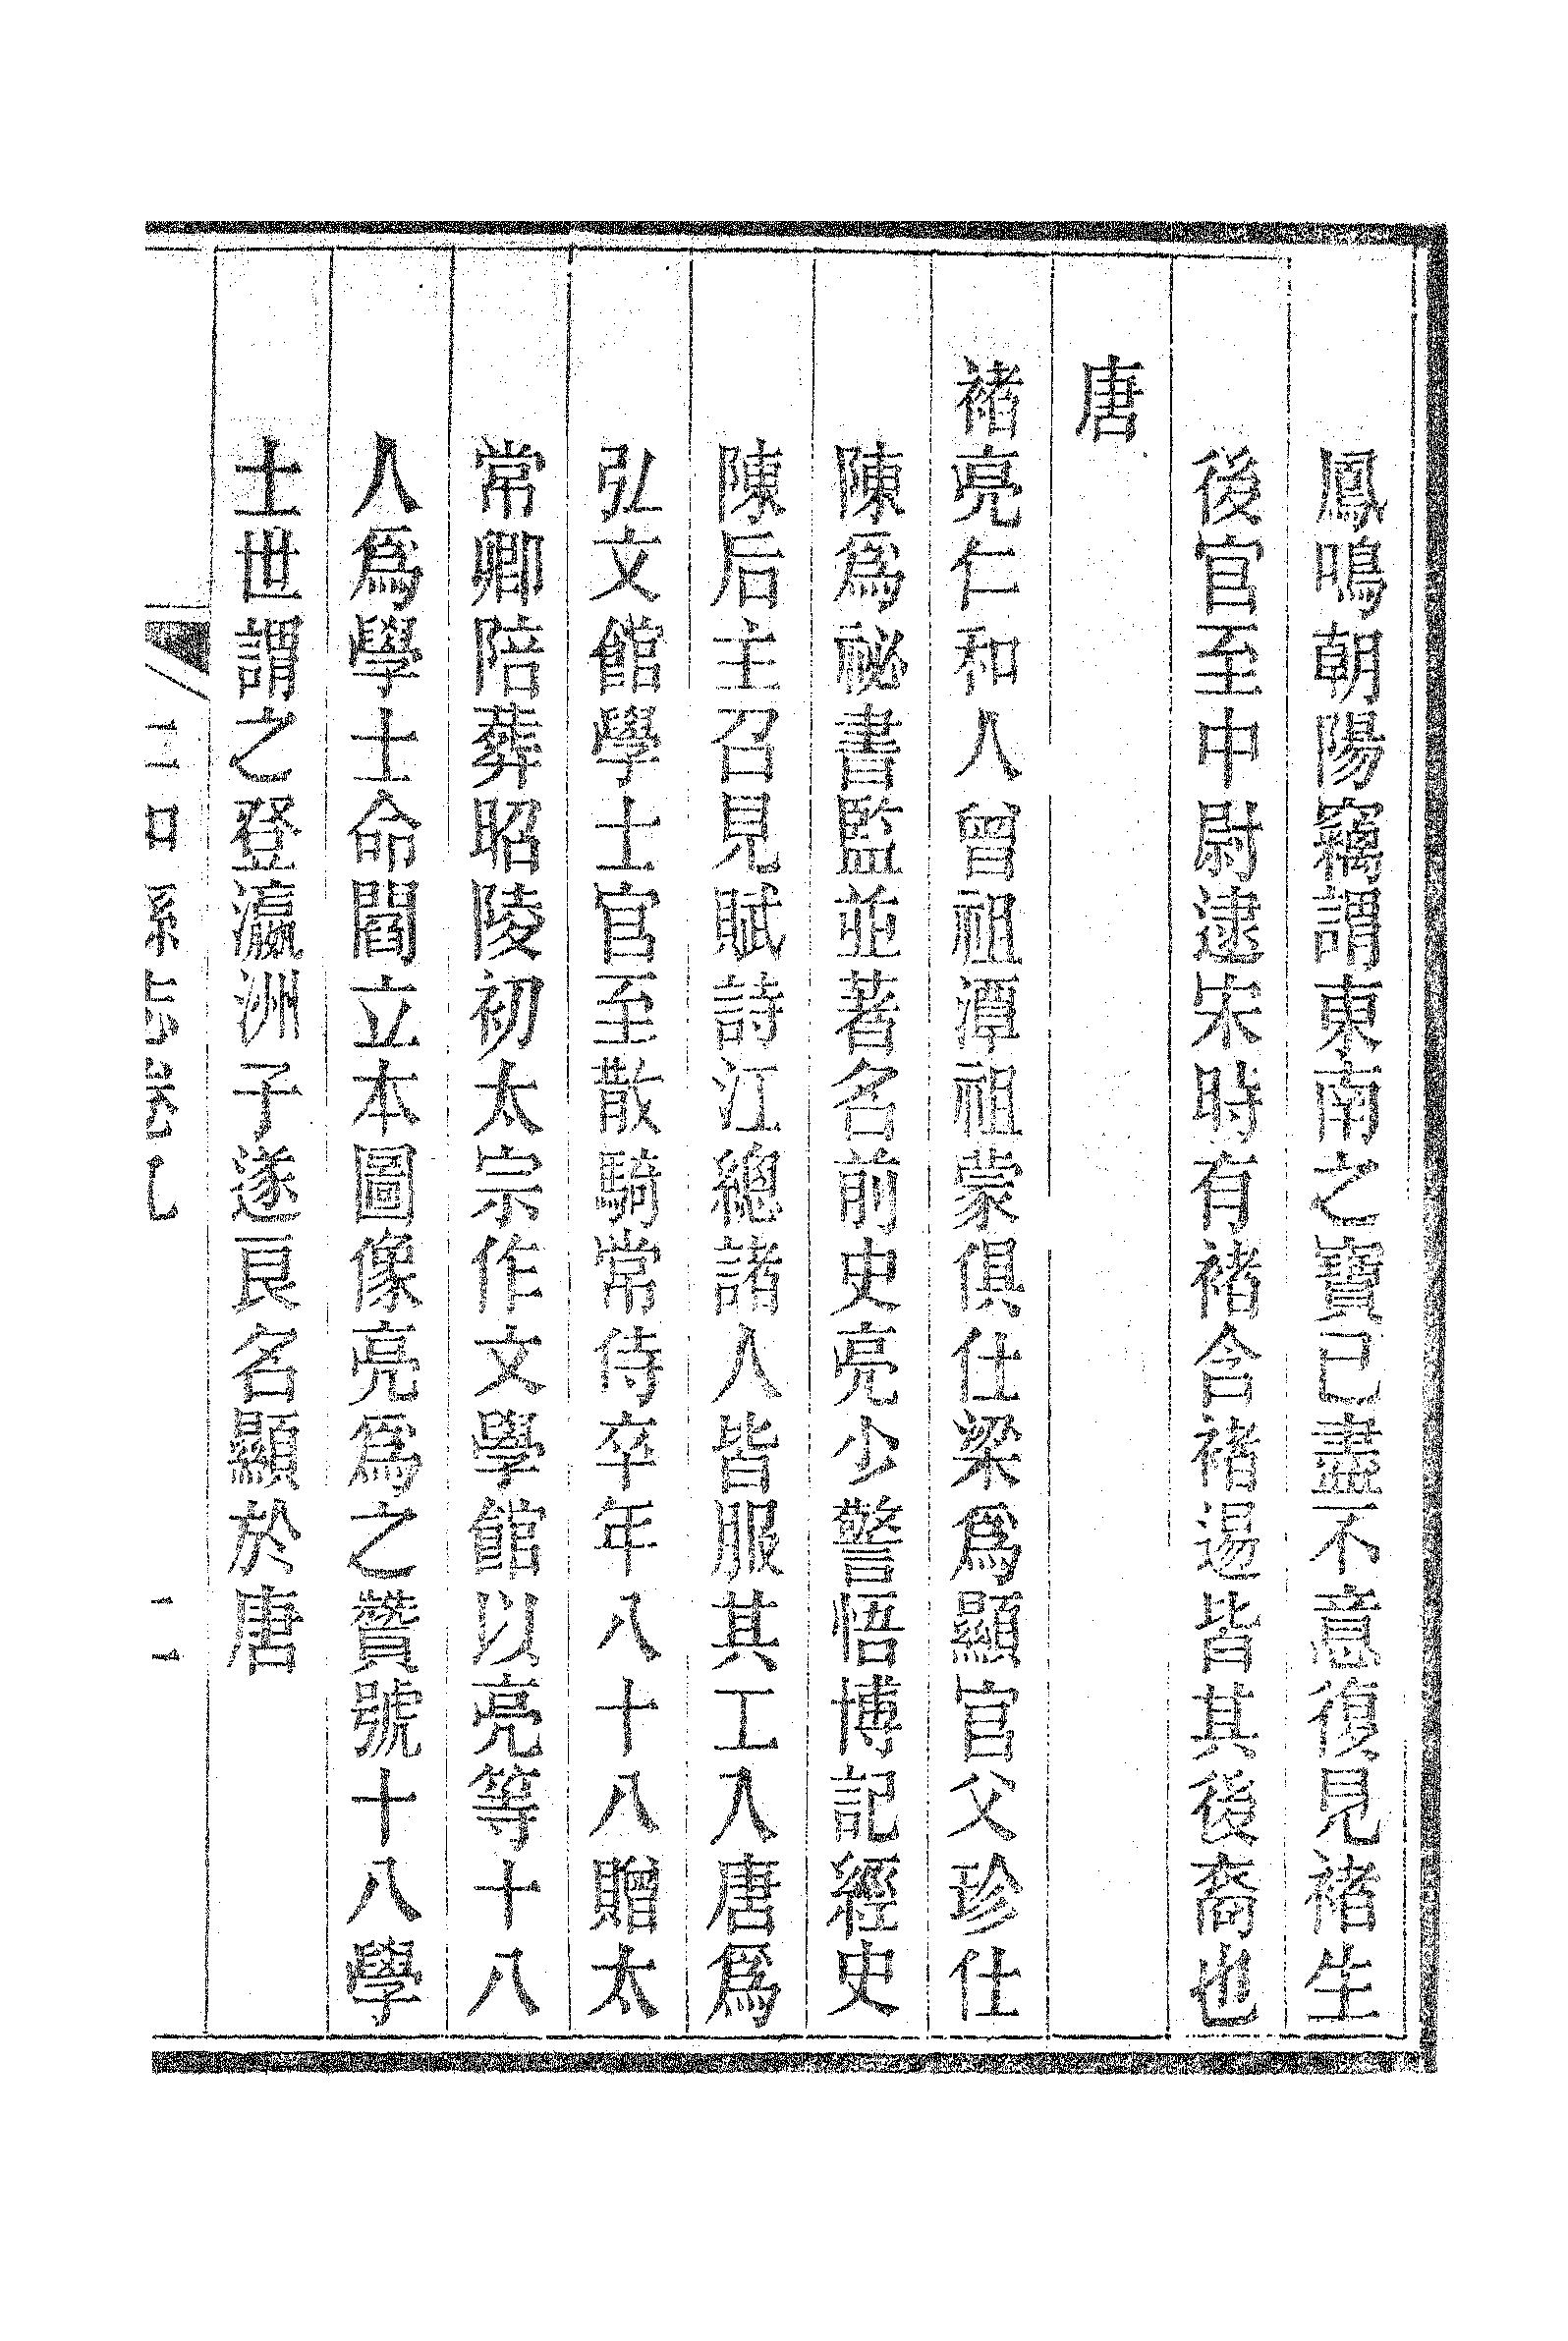 鳳鳴朝陽竊謂東南之寶已盡不意復見褚生
後官至中尉逮宋時有褚含褚逿皆其後裔也
唐
褚亮仁和人曾祖潭祖蒙俱仕梁爲顯官父珍仕
陳爲祕書監並著名前史亮少警悟博記經史
陳后主召見賦詩江總諸人皆服其工入唐爲
弘文館學士官至散騎常侍卒年八十八贈太
常卿陪葬昭陵初太宗作文學館以亮等十八
人爲學士命閻立本圖像亮爲之贊號十八學
士世謂之登瀛洲子遂良名顯於唐